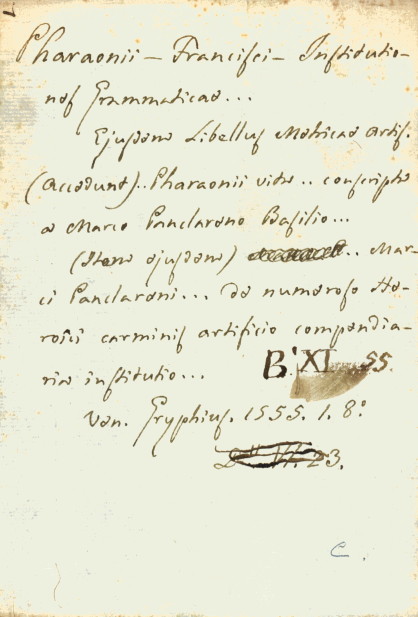 Pharaonii – Francisci – Institutio-
nes Grammaticae...
Ejusdem Libellus Metricae Artis.
(Accedunt).. Pharaonii vita.. conscripta
a Marco Panclareno Basilio...
(Item ejusdem) .. Mar-
ci Panclareni... de numeroso He-
roici carminis artificio compendia-
ria institutio...
B. XI 55.
Ven. Gryphius. 1555. 1. 8°
23.
C.